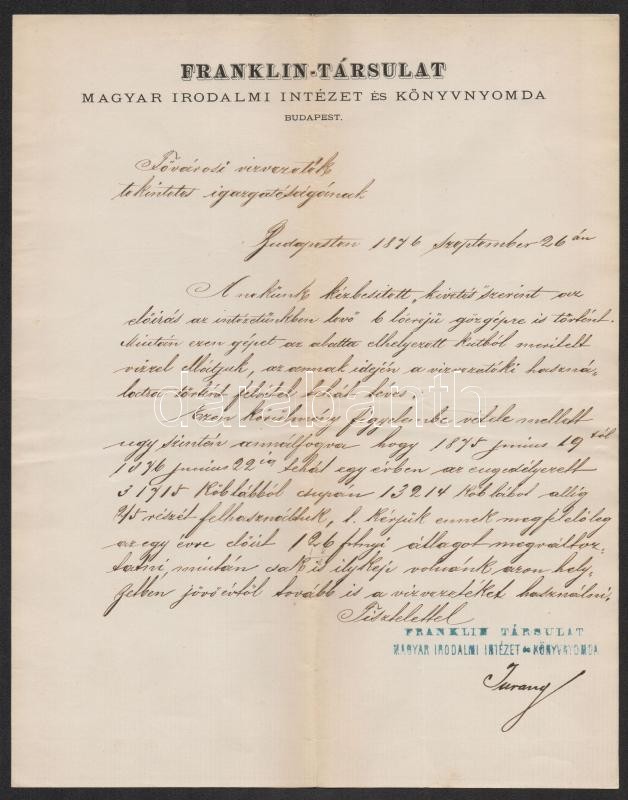 FRANKLIN-TÁRSULAT
MAGYAR IRODALMI INTÉZET ÉS KÖNYVNYOMDA
BUDAPEST.
Fővárosi vizvezeték
tekintetes igazgatóságának
Budapesten 1876 Szeptember 26 án
A nekünk kézbesitett „kivetés" szerint az
előirás az intézetünkben levő 6 lóerejü gőzgépre is történt.
Miután ezen gépet az alatta elhelyezett kutból meritett
vizzel ellátjuk, az annak idején a vizvezetéki haszná-
latra történt felvétel tehát téves.
Ezen körülmény figyelembe vétele mellett
ugy szintén annálfogva hogy 1875 junius 19 től
1876 junius 22 ig tehát egy évben az engedélyezett
31715 Köblábból csupán 13214 Köblábat alig
2/5 részét felhasználtuk, kérjük ennek megfelelőleg
az egy évre előirt 126 frtnyi átlagot megváltoz-
tatni, miután csak is ilykép volnánk azon hely-
zetben jövő évtől tovább is a vizvezetéket használni.
Tisztelettel
FRANKLIN TÁRSULAT
MAGYAR IRODALMI INTÉZET és KÖNYVNYOMDA
darabanth